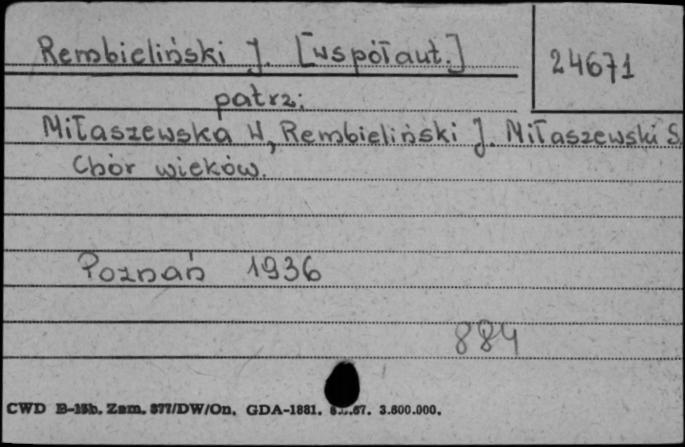 Rembieliński J. [współaut.]
24671
patrz:
Miłaszewska W, Rembieliński J. Miłaszewski S.
Chór wieków.
Poznań 1936
884
CWD B-15b. Zam. 877/DW/On. GDA-1881. 3.600.000.